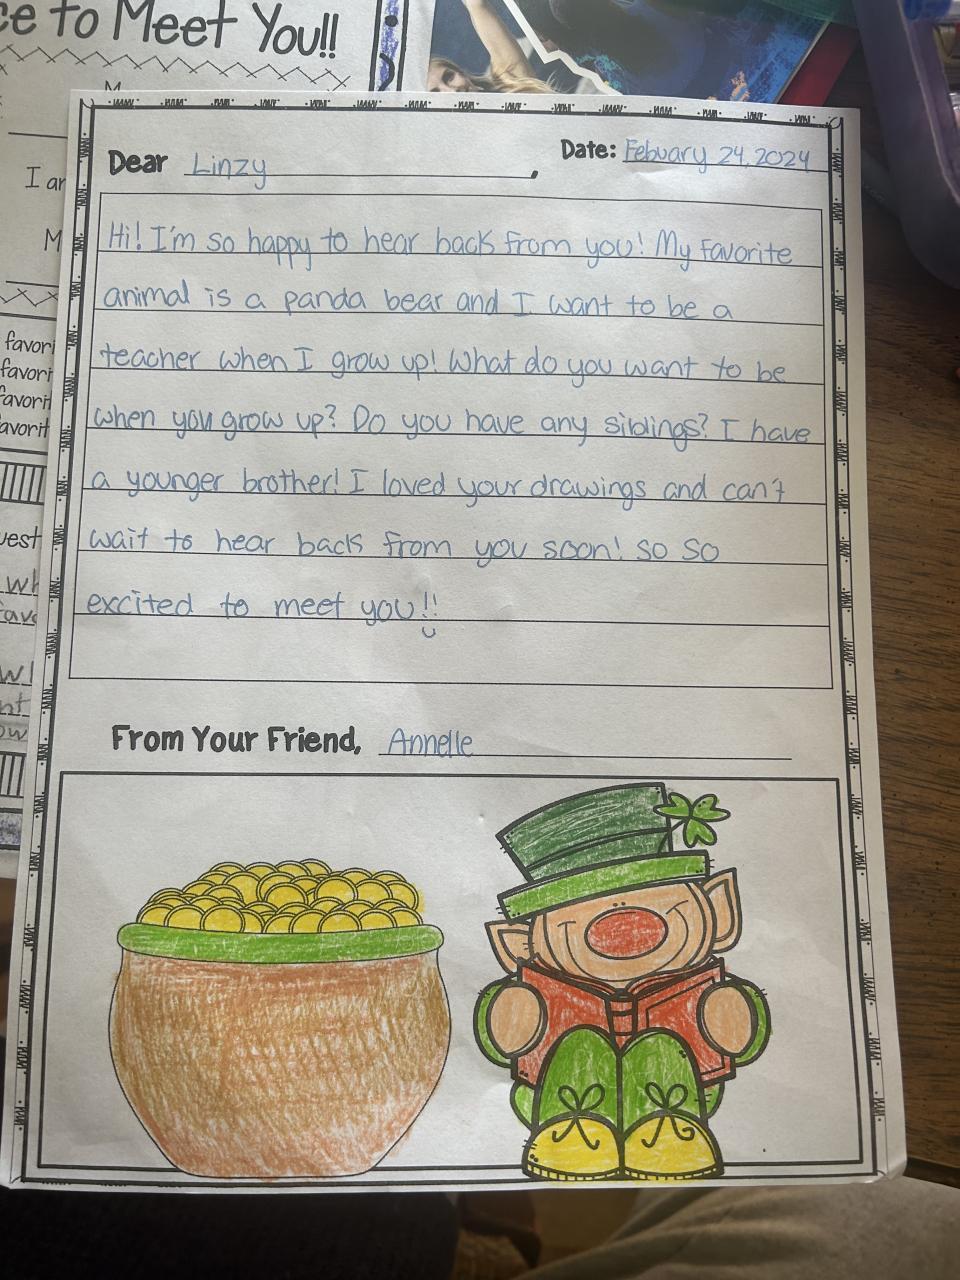 ce to Meet You!!
M
I ar
M
favori
favori
favorit
avorit
uest
wh
favo
w
nt
ow
Dear Linzy,
Date: Febuary 24, 2024
Hi! I'm so happy to hear back from you! My favorite
animal is a panda bear and I want to be a
teacher when I grow up! What do you want to be
when you grow up? Do you have any siblings? I have
a younger brother! I loved your drawings and can't
wait to hear back from you soon! so so
excited to meet you!!
From Your Friend, Annelle